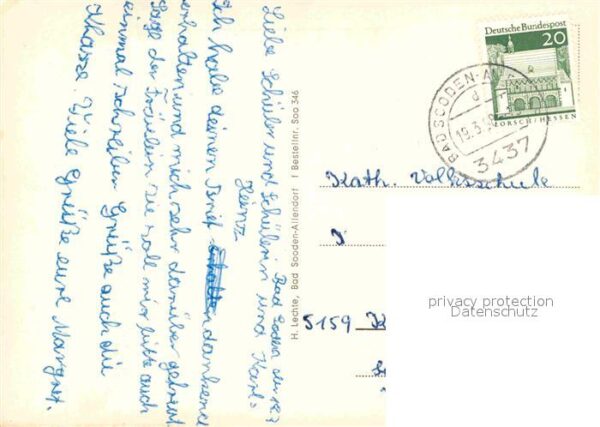 Bad Soden, den 18.3
Liebe Schüler und Schülerin und Karl-
Heinz
Ich habe deinen Brief dankend
erhalten und mich sehr darüber gefreut
Sage der Fräulein sie soll mir bitte auch
einmal schreiben Grüße auch die
Klasse. Viele Grüße eure Margret.
H. Lechte, Bad Sooden-Allendorf | Bestellnr. Soo 346
Deutsche Bundespost
20
LORSCH/HESSEN
BAD SOODEN-AL
d
19.3.
3437
Kath. Volksschule
5159
privacy protection
Datenschutz